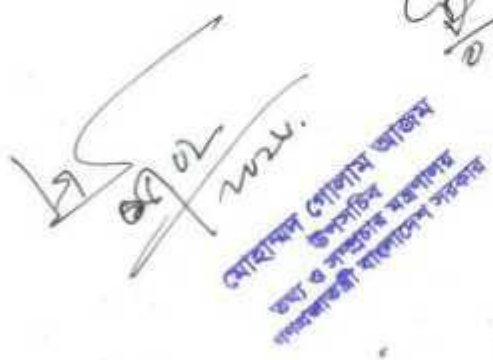 ০২
২০২৪.
মোহাম্মদ গোলাম আজম
উপসচিব
তথ্য ও সম্প্রচার মন্ত্রণালয়
গণপ্রজাতন্ত্রী বাংলাদেশ সরকার